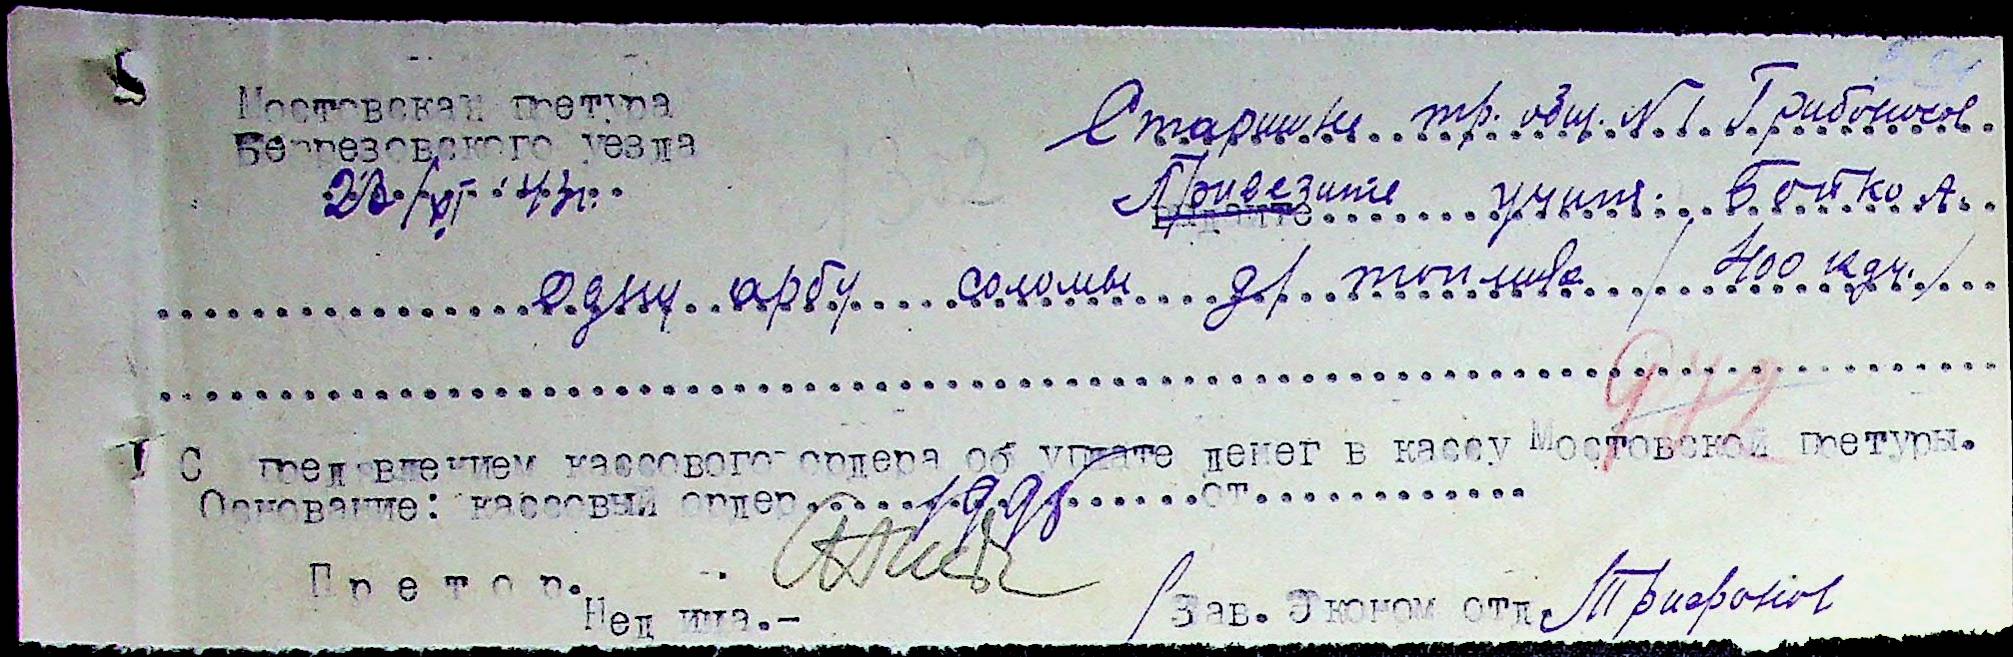 Мостовская претура
Березовского уезда
Старшине тр. общ. N 1 Грибоносов
23/XI 43г.
Привезите учит. Бойко А.
одну арбу соломы дл топлива / 400 кгч. /
942
С пред'явлением кассового ордера об уплате денег в кассу Мостовской претуры.
Основание: кассовый ордер 1998 от
Претор.
Недица.-
Зав. Эконом отд. Трифонов